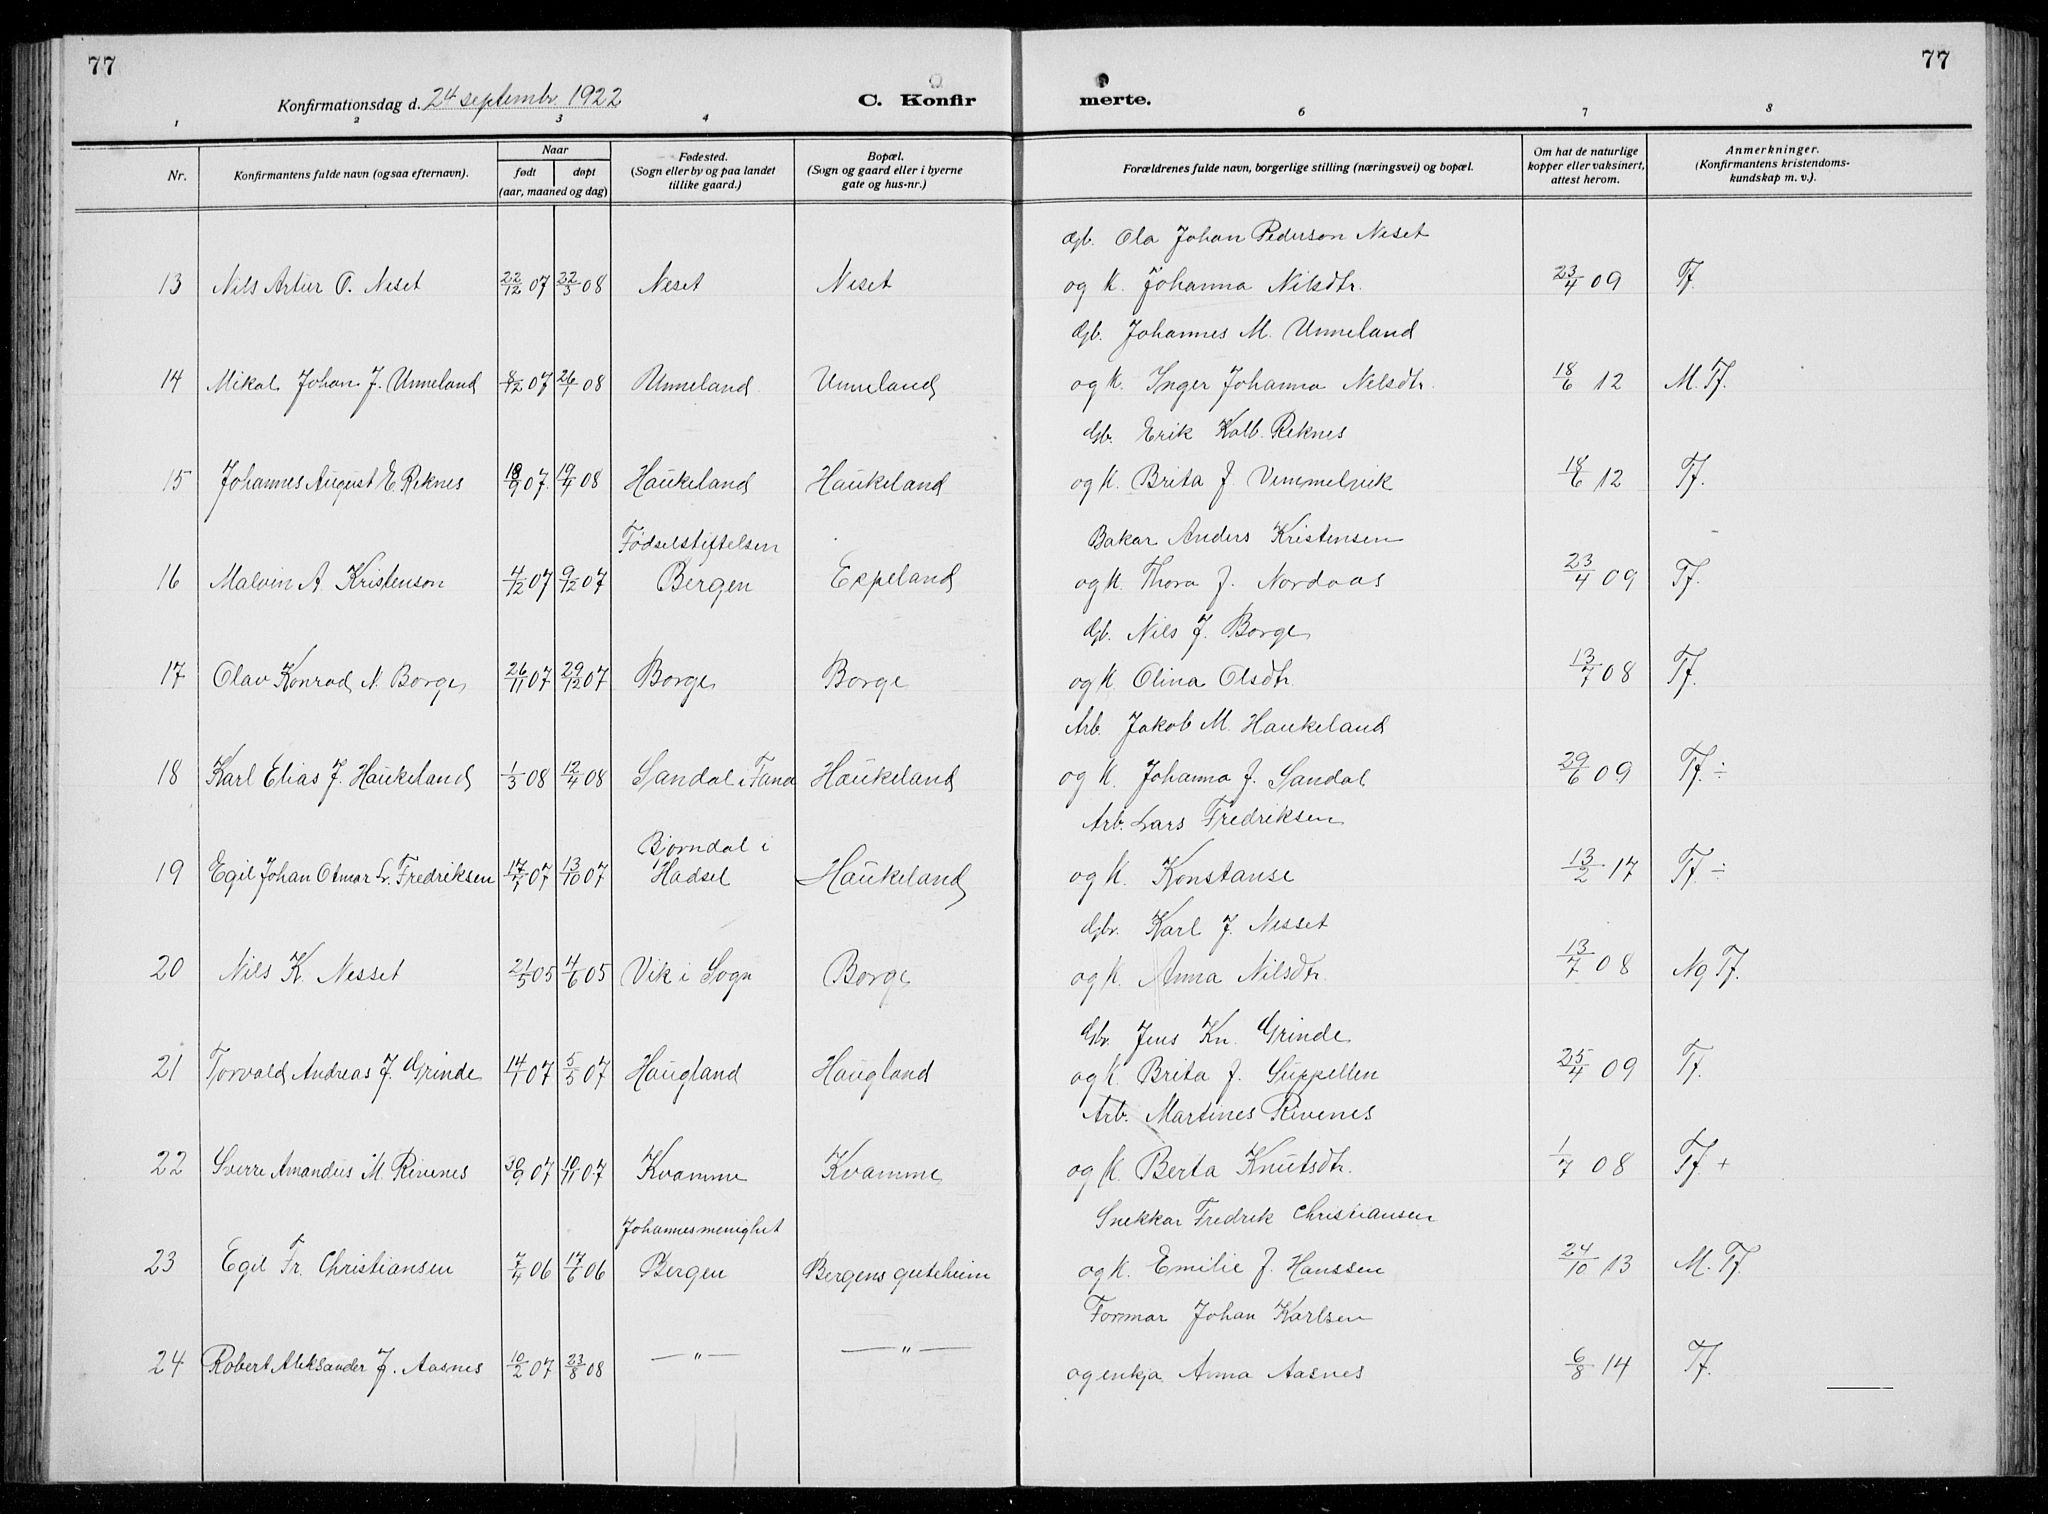 77
77
Konfirmationsdag d. 24 septembr. 1922
C. Konfir
merte.
1 2 3 4 6 7 8
Nr.
Konfirmantens fulde navn (ogsaa efternavn).
Naar
født døpt
(aar, maaned og dag)
Fødested.
(Sogn eller by og paa landet
tillike gaard.)
Bopæl.
(Sogn og gaard eller i byerne
gate og hus-nr.)
Forældrenes fulde navn, borgerlige stilling (næringsvei) og bopæl.
Om hat de naturlige
kopper eller vaksinert,
attest herom.
Anmerkninger.
(Konfirmantens kristendoms-
kundskap m. v.).
Gb. Ola Johan Pederson Neset
13 Nils Artur O. Neset 22/12 07 22/3 08 Neset Neset og K. Johanna Nilsdtr. 23/4 09 Tf.
Gb. Johannes M. Unneland
14 Mikal Johan J. Unneland 8/12 07 26/1 08 Unneland Unneland og K. Inger Johanna Nilsdtr. 18/6 12 M. Tf.
Gb. Erik Kolb. Reknes
15 Johannes August E. Reknes 07 08 Haukeland Haukeland og K. Brita J. Vemmelvik 18/6 12 Tf.
Fødselstiftelsen Bakar Anders Kristensen
16 Malvin A. Kristenson 4/12 07 9/12 07 Bergen Espeland og K. Thora J. Nordaas 23/4 09 Tf.
Gb. Nils J. Borge
17 Olav Konrad N. Borge 26/11 07 29/12 07 Borge Borge og K. Olina Olsdtr. 13/7 08 Tf.
Arb. Jakob M. Haukeland
18 Karl Elias J. Haukeland 1/3 08 12/4 08 Sandal i Fana Haukeland og K. Johanna J. Sandal 29/6 09 Tf. ÷
Arb. Lars Fredriksen
Bjørndal i
19 Egil Johan Otmar L. Fredriksen 17/7 07 13/10 07 Hadsel Haukeland og K. Konstanse 13/2 17 Tf. ÷
Gbr. Karl J. Nesset
20 Nils K. Nesset 21/5 05 4/6 05 Vik i Sogn Borge og K. Anna Nilsdtr. 13/7 08 Ng Tf.
Gbr. Jens Kn. Grinde
21 Torvald Andreas J. Grinde 14/1 07 5/5 07 Haugland Haugland og K. Brita J. Suppellen 25/4 09 Tf.
Arb. Martines Rivenes
22 Sverre Amandus M. Rivenes 30/9 07 10/11 07 Kvamme Kvamme og K. Berta Knutsdtr. 1/7 08 Tf. +
Johannesmenighet Snekkar Fredrik Christiansen
23 Egil Fr. Christiansen 7/4 06 17/6 06 Bergen Bergens guteheim og K. Emilie J. Hanssen 24/10 13 M. Tf.
Formar Johan Karlsen
24 Robert Aleksander J. Aasnes 10/2 07 23/8 08 — " — — " — og enkja Anna Aasnes 6/8 14 Tf.